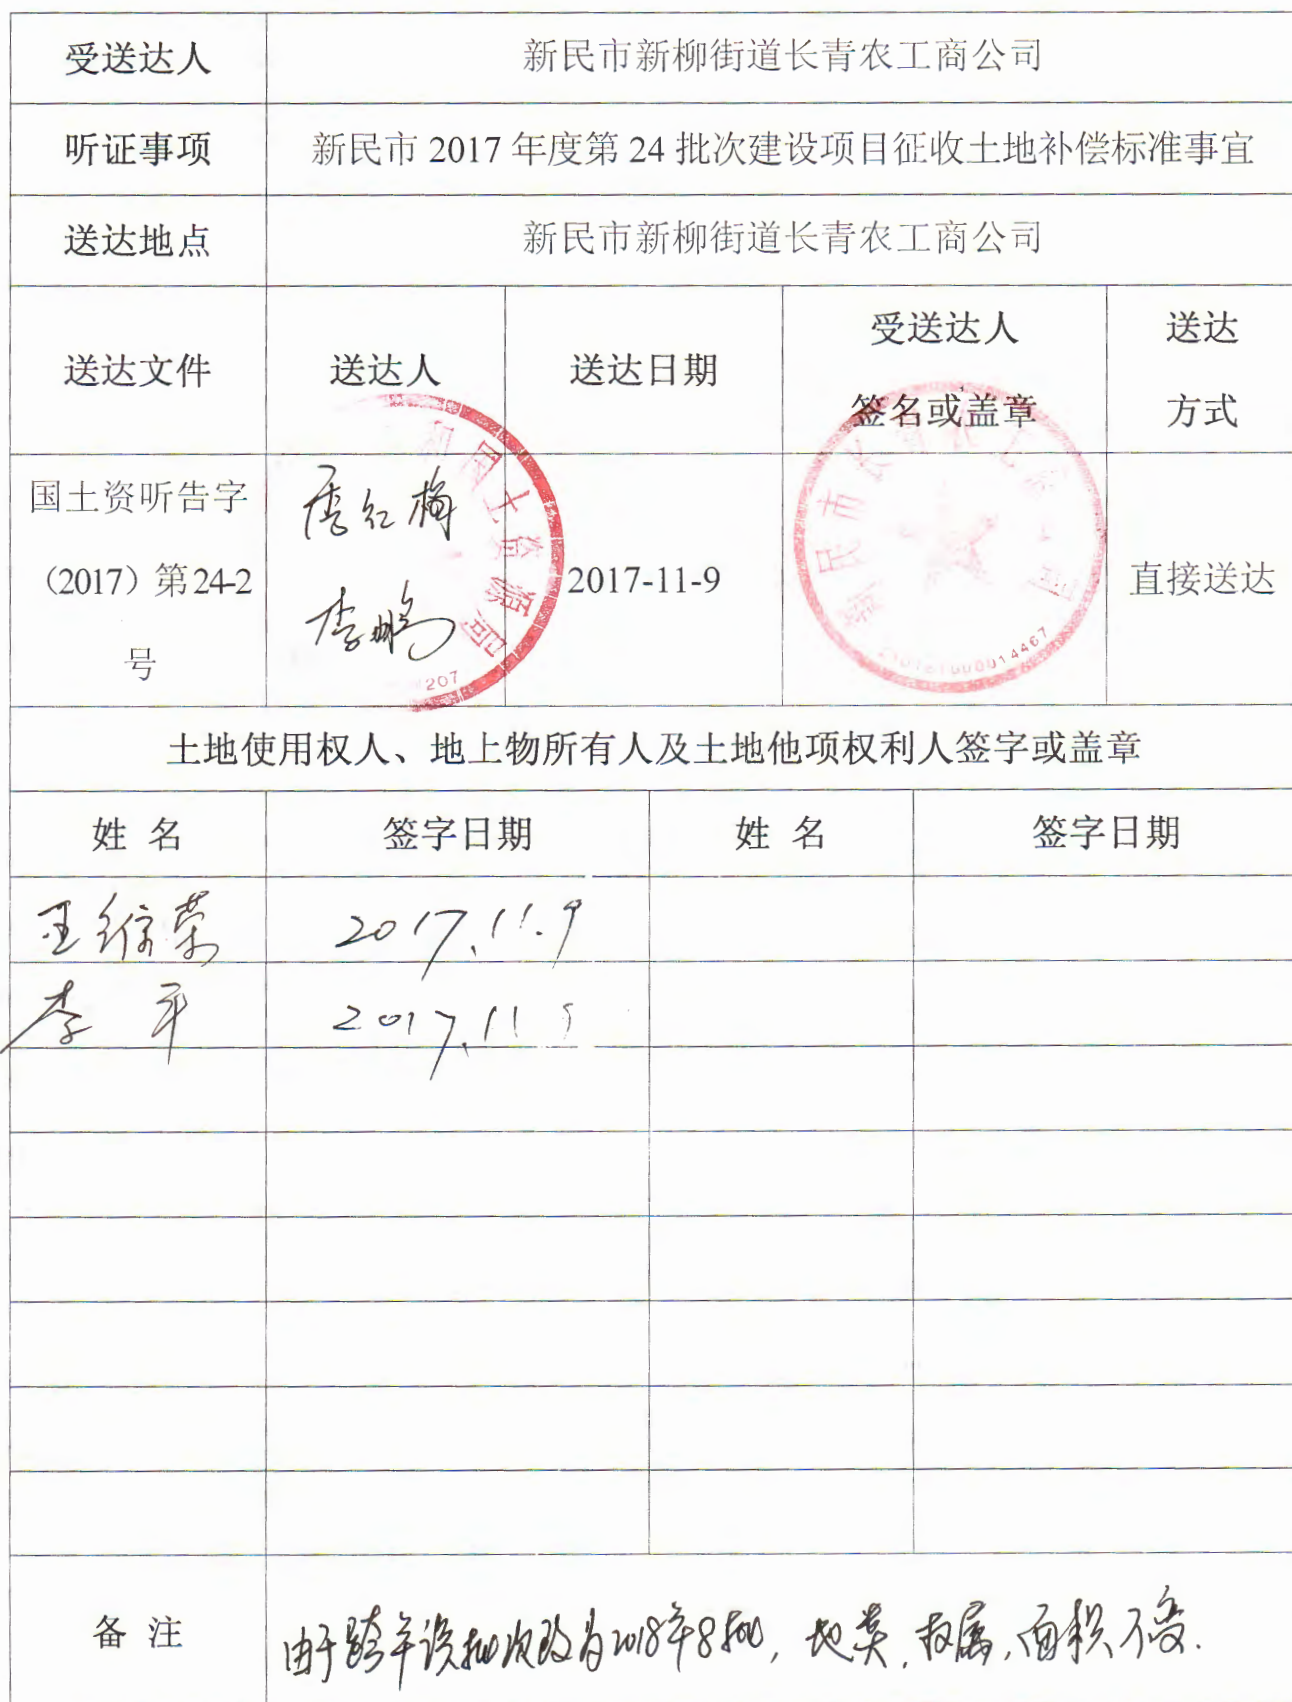 受送达人 新民市新柳街道长青农工商公司
听证事项 新民市 2017 年度第 24 批次建设项目征收土地补偿标准事宜
送达地点 新民市新柳街道长青农工商公司
送达文件 送达人 送达日期 受送达人 送达
签名或盖章 方式
国土资听告字
（2017）第 24-2
号
红梅
李鹏
国土资源局
207
2017-11-9
新民市长青农工商公司
14467
直接送达
土地使用权人、地上物所有人及土地他项权利人签字或盖章
姓 名 签字日期 姓 名 签字日期
王 荣 2017.11.9
李 平 2017.11.9
备 注 由于跨年该批次改为2018年8批，地类，权属，面积不变.